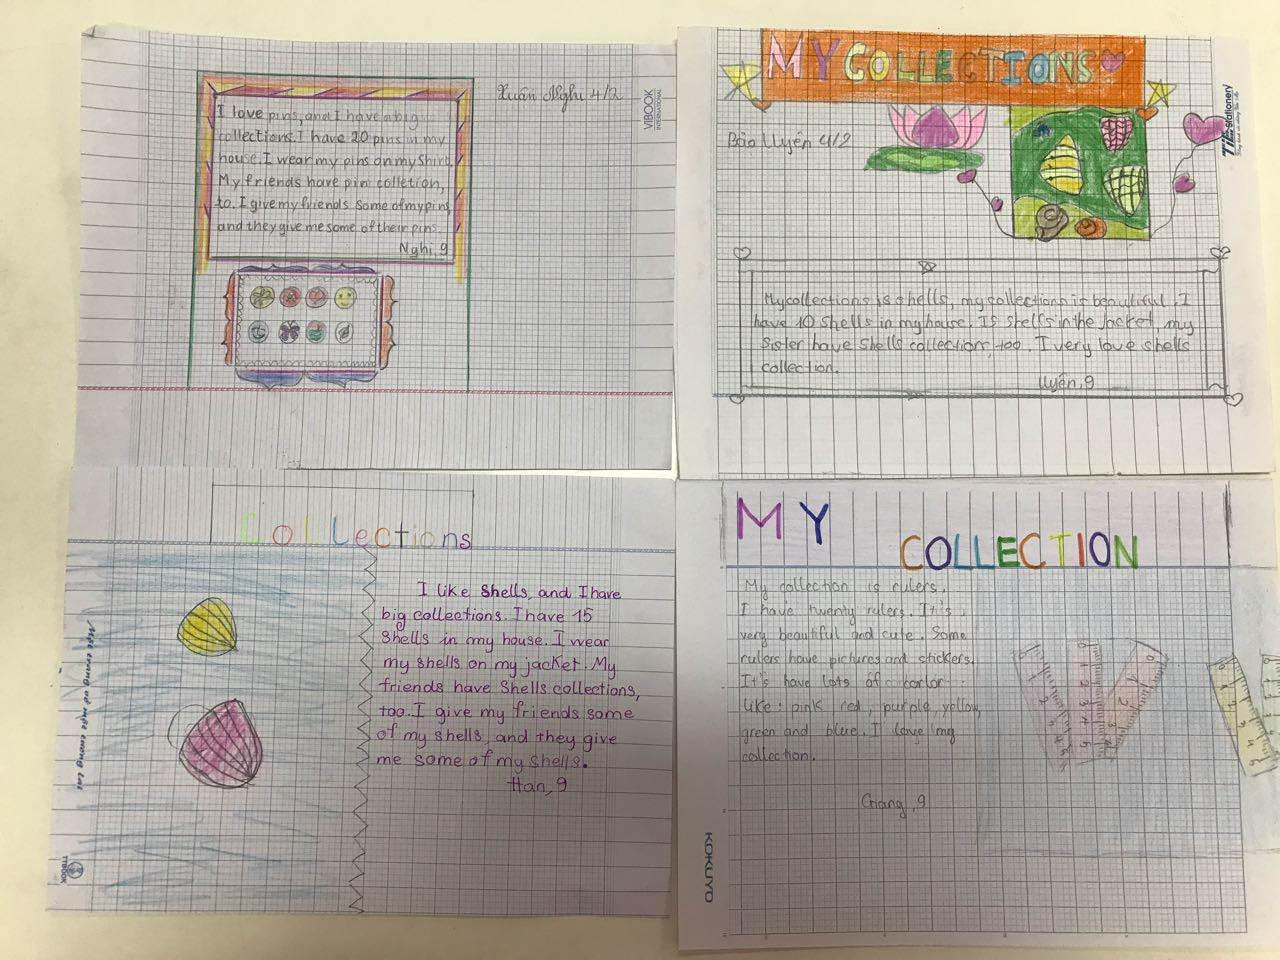 Xuân Nghi 4/2
VIBOOK
INTERNATIONAL
I love pins, and I have a big
collections. I have 20 pins in my
house. I wear my pins on my shirt.
My friends have pin colletion,
to. I give my friends some of my pins,
and they give me some of their pins.
Nghi, 9
MY COLLECTIONS
TiE stationery
Bảo Uyên 4/2
My collections is shells, my collections is beautiful. I
have 10 shells in my house. I5 shells in the Jacket, my
Sister have shells collections, too. I very love shells
collection.
Uyên, 9
Collections
I like Shells, and I have
big collections. I have 15
Shells in my house. I wear
my shells on my jacket. My
friends have Shells collections,
too. I give my friends some
of my shells, and they give
me some of my shells.
Han, 9
TTBOOK
MY
COLLECTION
My collection is rulers.
I have twenty rulers. It's
very beautiful and cute. Some
rulers have pictures and stickers.
It's have lots of
like: pink red, purple, yellow,
green and blue. I love my
collection.
Giang, 9
KOKUYO